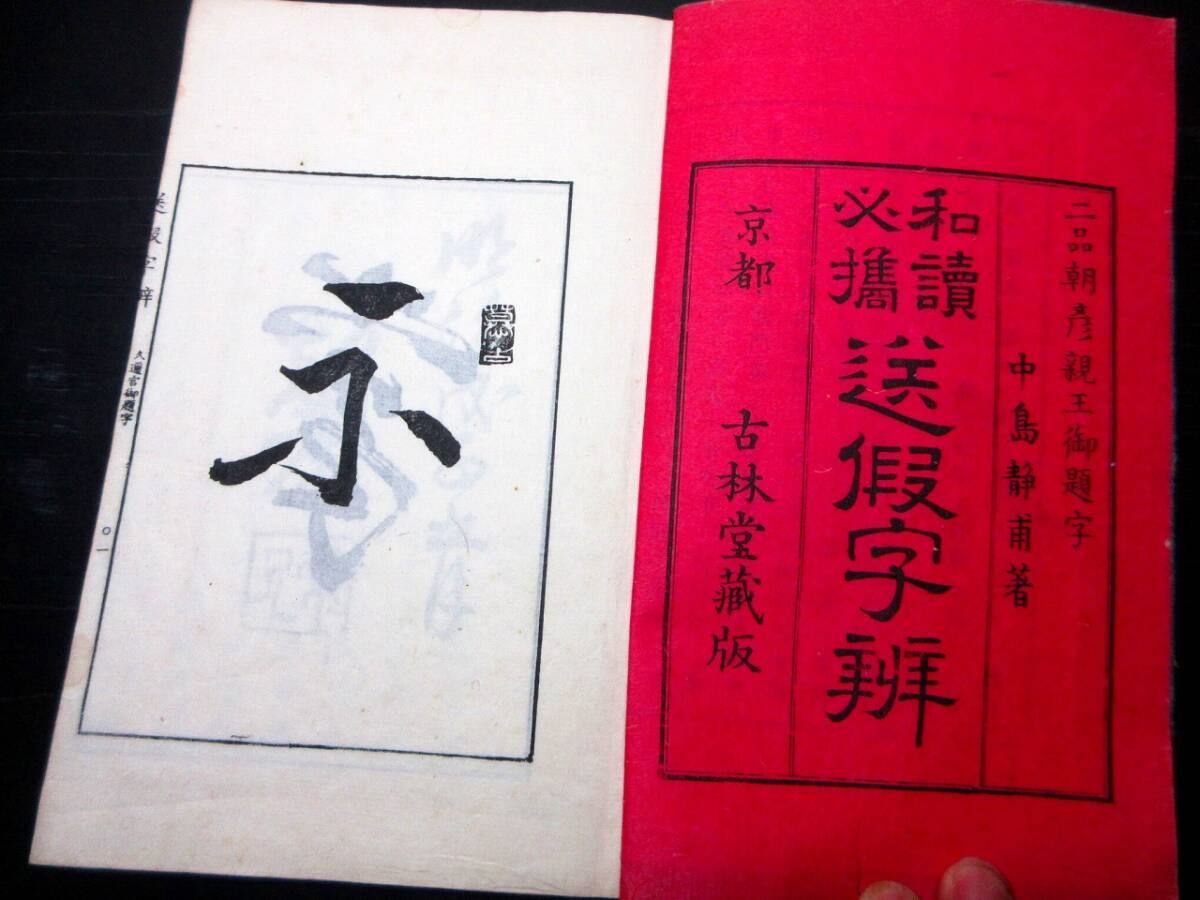 二品朝彦親王御題字
中島静甫著
和讀
必攜
送假字辨
京都　古林堂藏版
示
送假字辨
久邇宮御題字
〇一